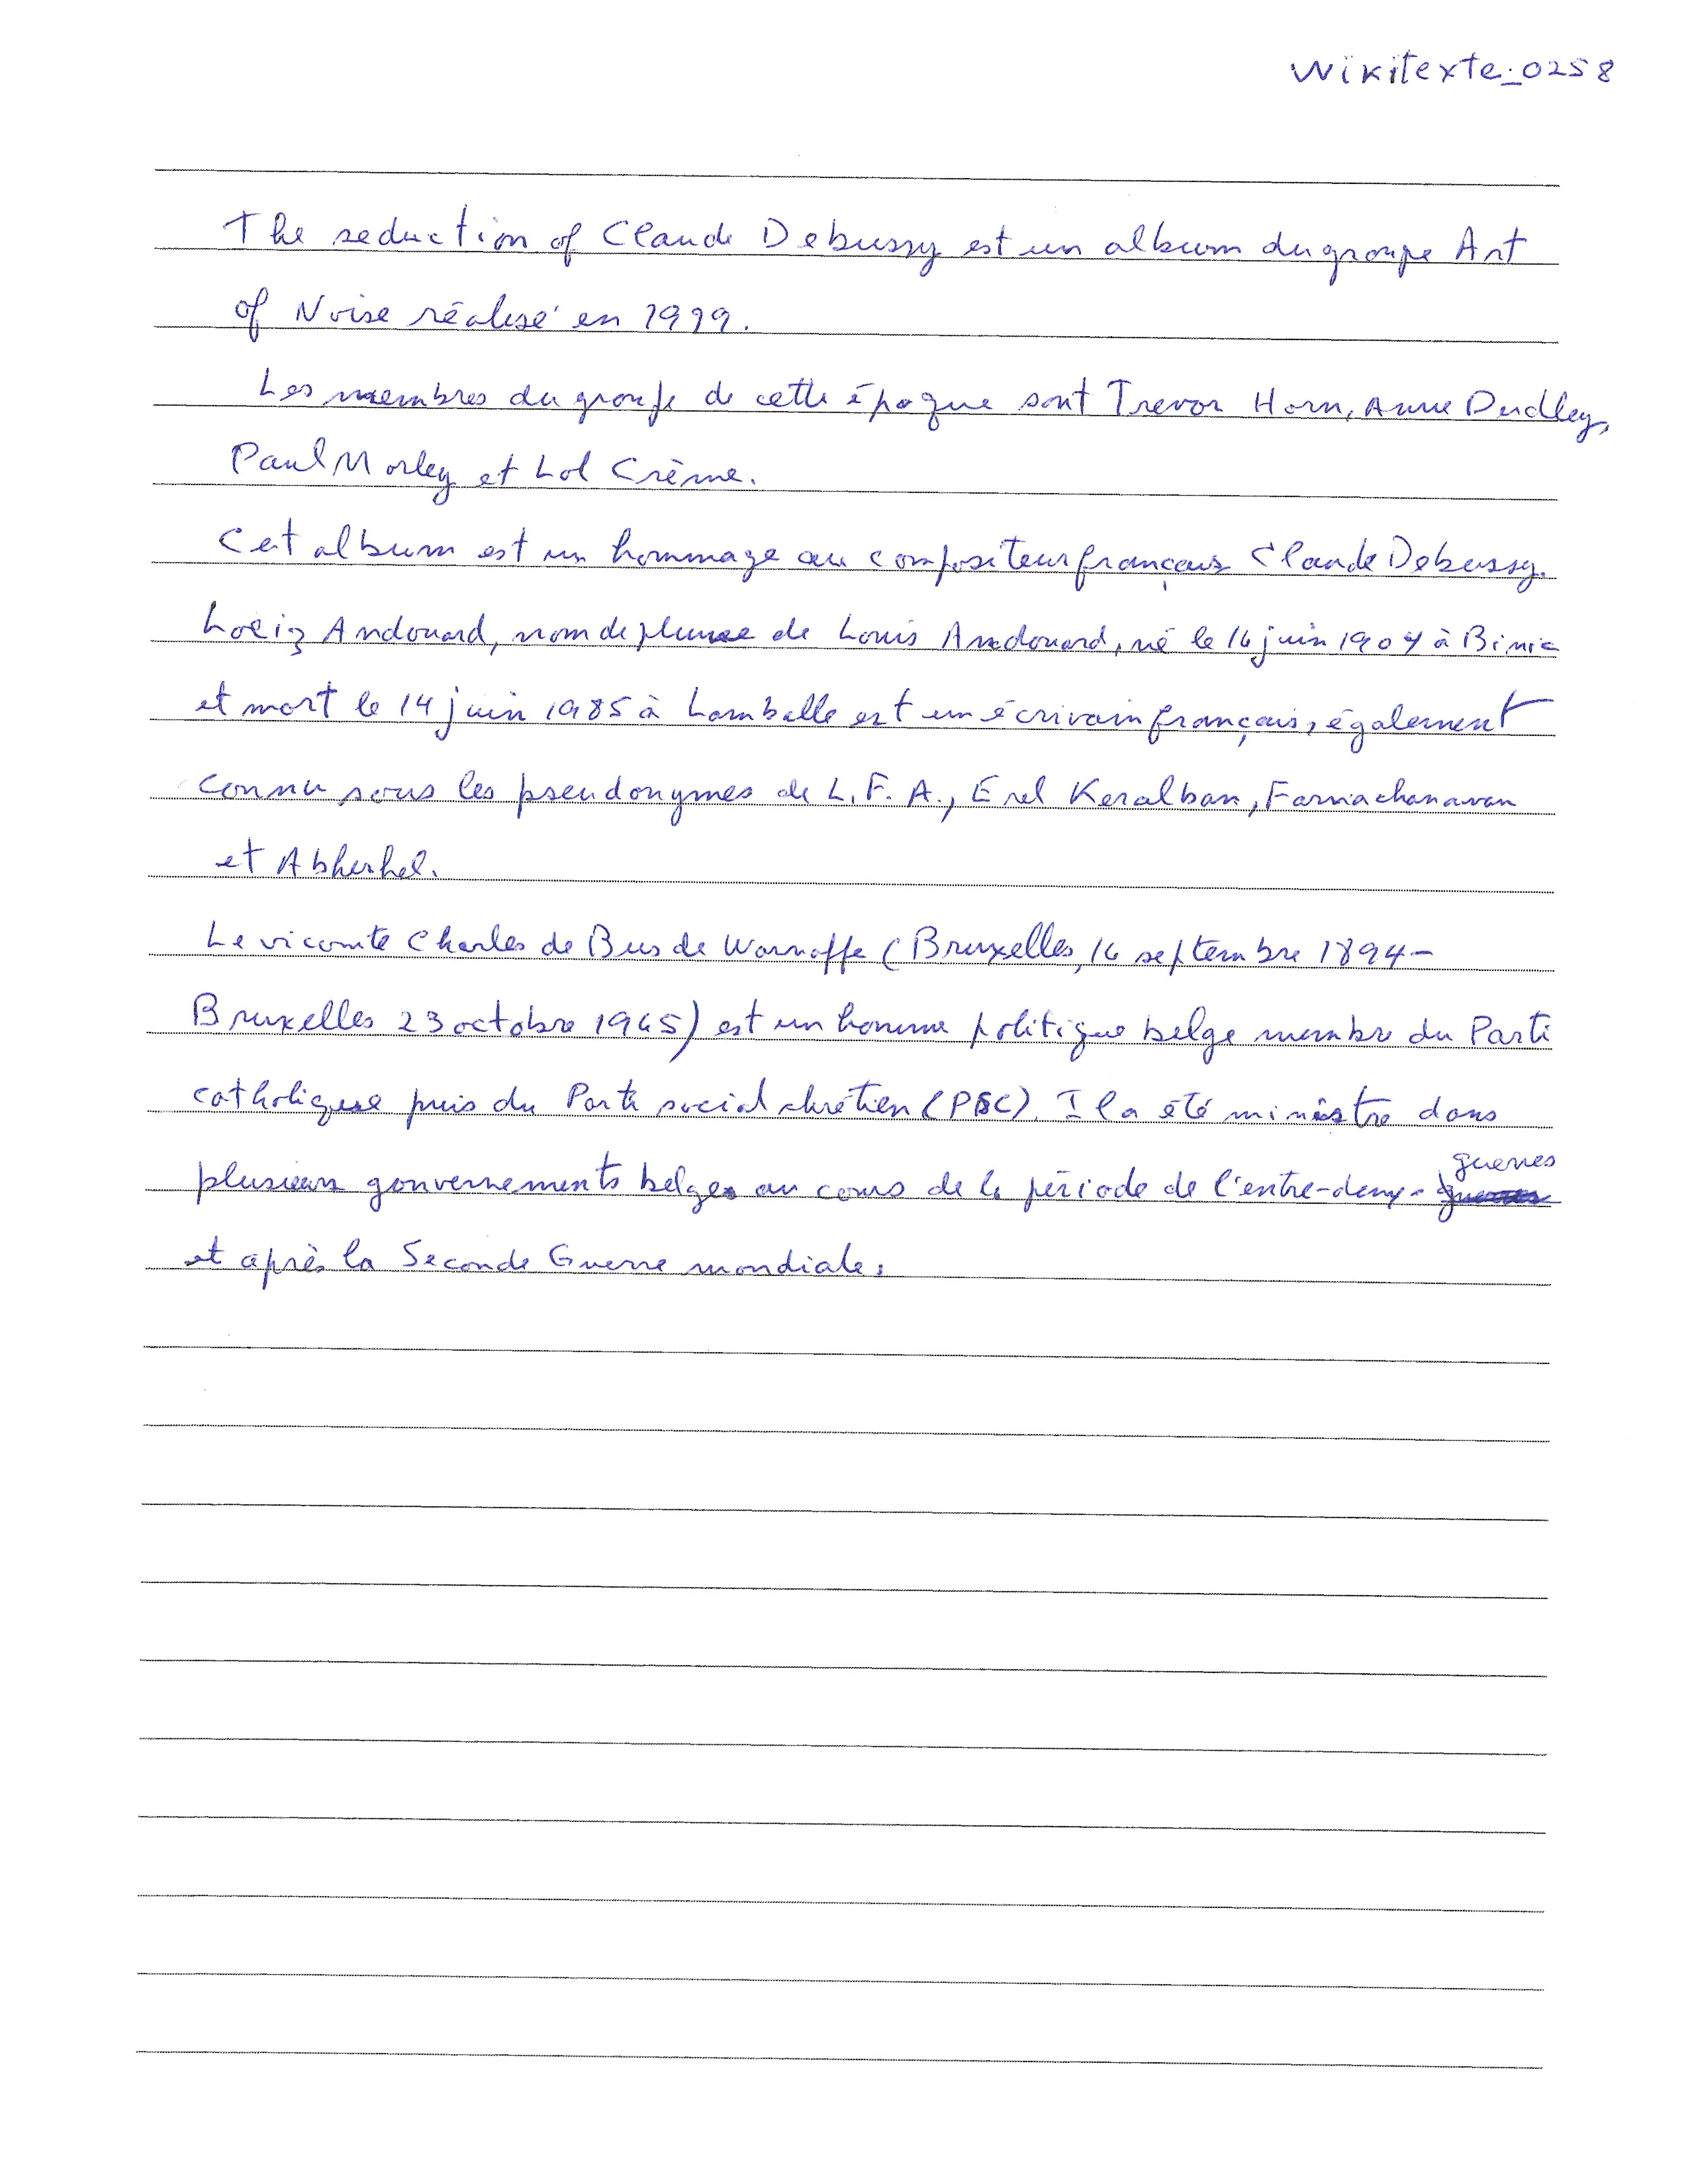 Wikitexte_0258
The seduction of Claude Debussy est un album du groupe Art
of Noise réalisé en 1999.
Les membres du groupe de cette époque sont Trevor Horn, Anne Dudley,
Paul Morley et Lol Crème.
Cet album est un hommage au compositeur français Claude Debussy.
Loeiz Andouard, nom de plume de Louis Andouard, né le 16 juin 1904 à Binic
et mort le 14 juin 1985 à Lamballe est un écrivain français, également
connu sous les pseudonymes de L. F. A., Erel Keralban, Farnachanavan
et Abherhel.
Le vicomte Charles de Bus de Warnaffe (Bruxelles, 16 septembre 1894-
Bruxelles 23 octobre 1965) est un homme politique belge membre du Parti
catholique puis du Parti social chrétien (PSC). Il a été ministre dans
plusieurs gouvernements belges au cours de la période de l'entre-deux-guerres
et après la Seconde Guerre mondiale.